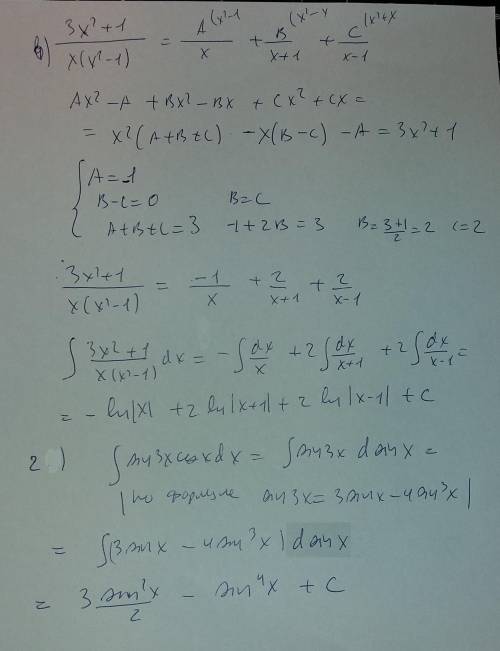 в) (3x²+1)/(x(x²-1)) = A^(x²-1/x + B^(x²-x/(x+1) + C^(x²+x/(x-1)
Ax² - A + Bx² - Bx + Cx² + Cx =
= x²(A+B+C) - x(B-C) - A = 3x²+1
{ A = -1
B-C=0 B=C
A+B+C=3 -1+2B=3 B=(3+1)/2=2 C=2
(3x²+1)/(x(x²-1)) = -1/x + 2/(x+1) + 2/(x-1)
∫ (3x²+1)/(x(x²-1)) dx = -∫ dx/x + 2∫ dx/(x+1) + 2∫ dx/(x-1) =
= - ln|x| + 2 ln|x+1| + 2 ln|x-1| + C
2) ∫ sin3x cosx dx = ∫ sin3x dsinx =
| по формуле sin3x = 3sinx - 4sin³x |
= ∫(3sinx - 4sin³x) dsinx
= 3 sin²x/2 - sin⁴x + C